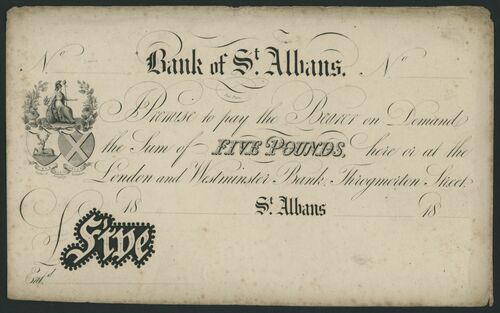 No Bank of St. Albans. No
I Promise to pay the Bearer on Demand
the Sum of FIVE POUNDS, here or at the
London and Westminster Bank, Throgmorton Street.
18 St. Albans 18
£ Five
Entd.